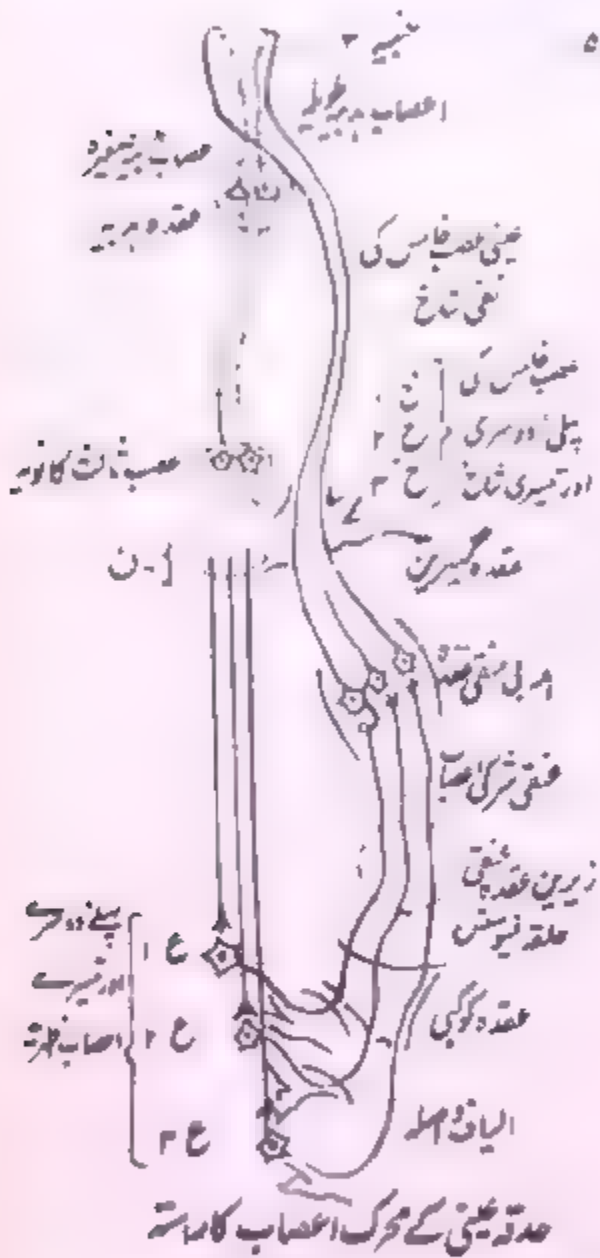 ۵
اعصاب ہدبیہ طویلہ
اعصاب ہدبیہ
عقدہ ہدبیہ
عینی عصب خامس کی
شاخ
عصب خامس کی
پہلی دوسری
اور تیسری شاخ
خ ۱
خ ۲
خ ۳
عصب ثالث کا نویہ
ن
عقدہ گیسرین
عنقی
عنقی شرکی اعصاب
زیرین عقدہ عنقی
حلقہ
عقدہ کوکبی
الیاف واصلہ
پہلے دوسرے
اور تیسرے
اعصاب ظہریہ
ع ۱
ع ۲
ع ۳
حدقہ عینی کے محرک اعصاب کا راستہ